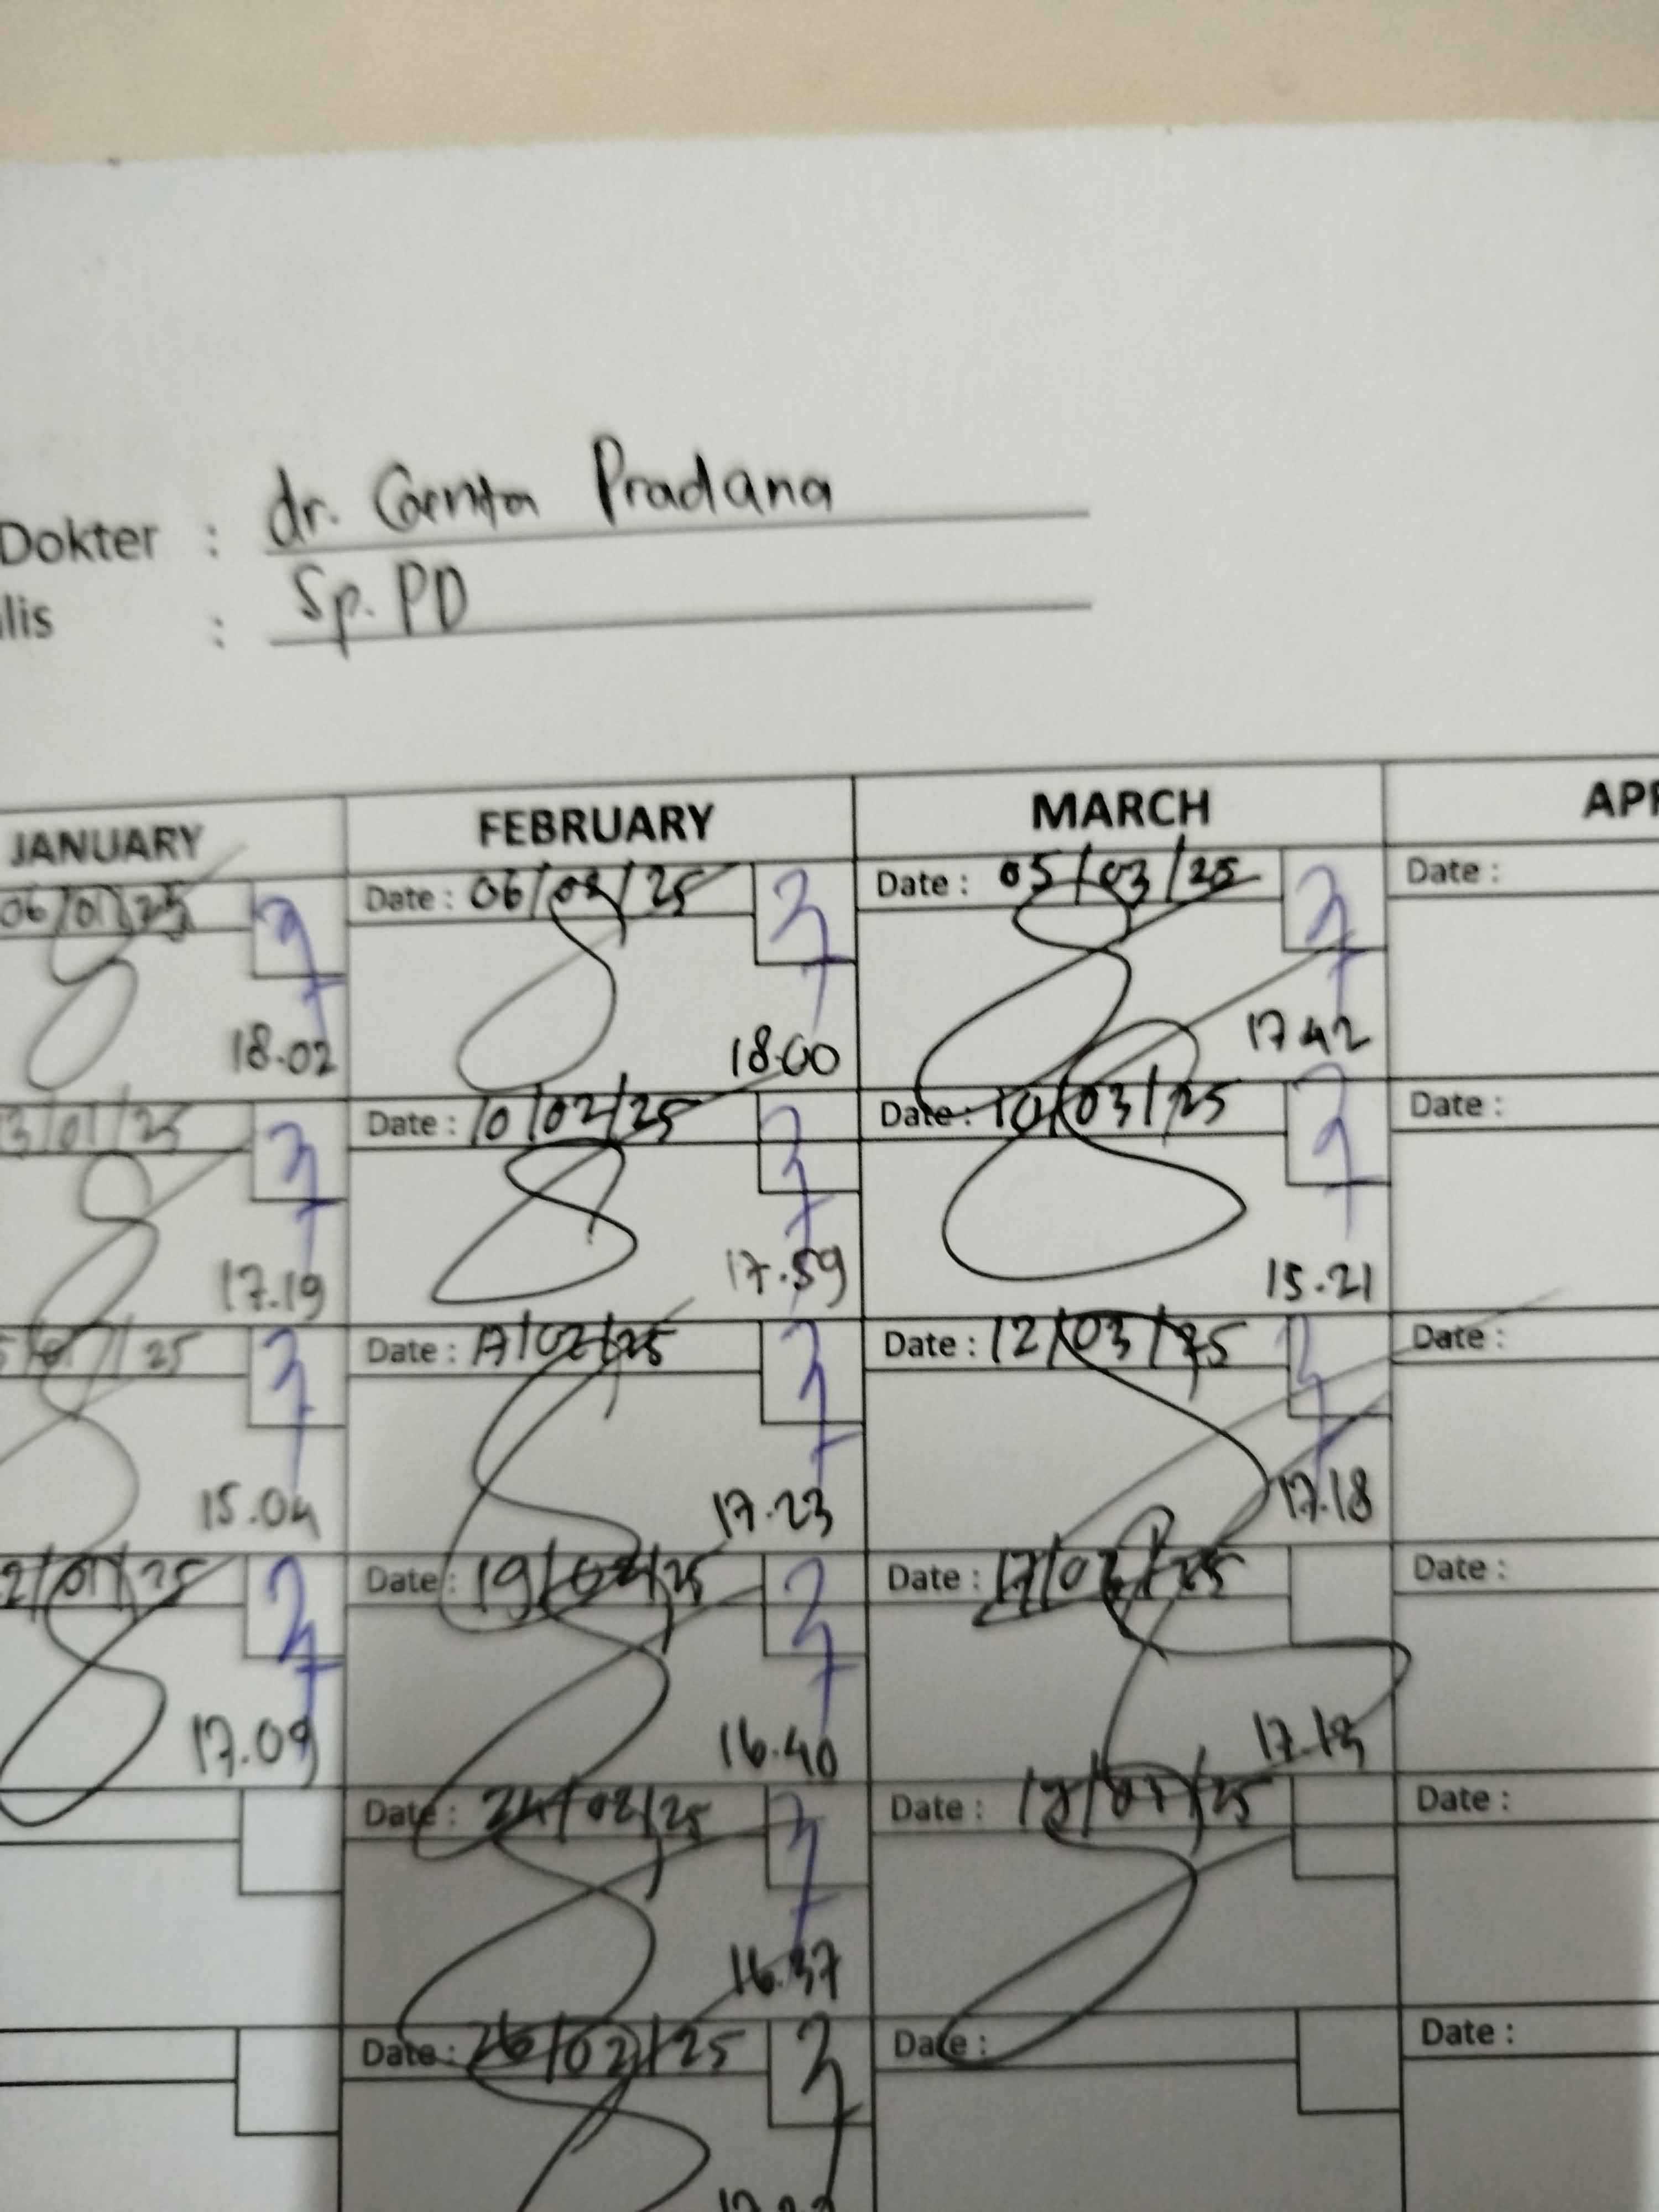 Dokter : dr. Pradana
lis : Sp. PD
JANUARY FEBRUARY MARCH APR
06/01/25 Date : 06/02/25 Date : 05/03/25 Date :
18.02 18.00 17.42
3/01/25 Date : 10/02/25 Date : 10/03/25 Date :
17.19 17.59 15.21
25 Date : 17/02/25 Date : 12/03/25 Date :
15.04 17.23 17.18
2/01/25 Date : 19/02/25 Date : 17/03/25 Date :
17.09 16.40
Date : 24/02/25 Date : Date :
16.37
Date : 26/02/25 Date : Date :